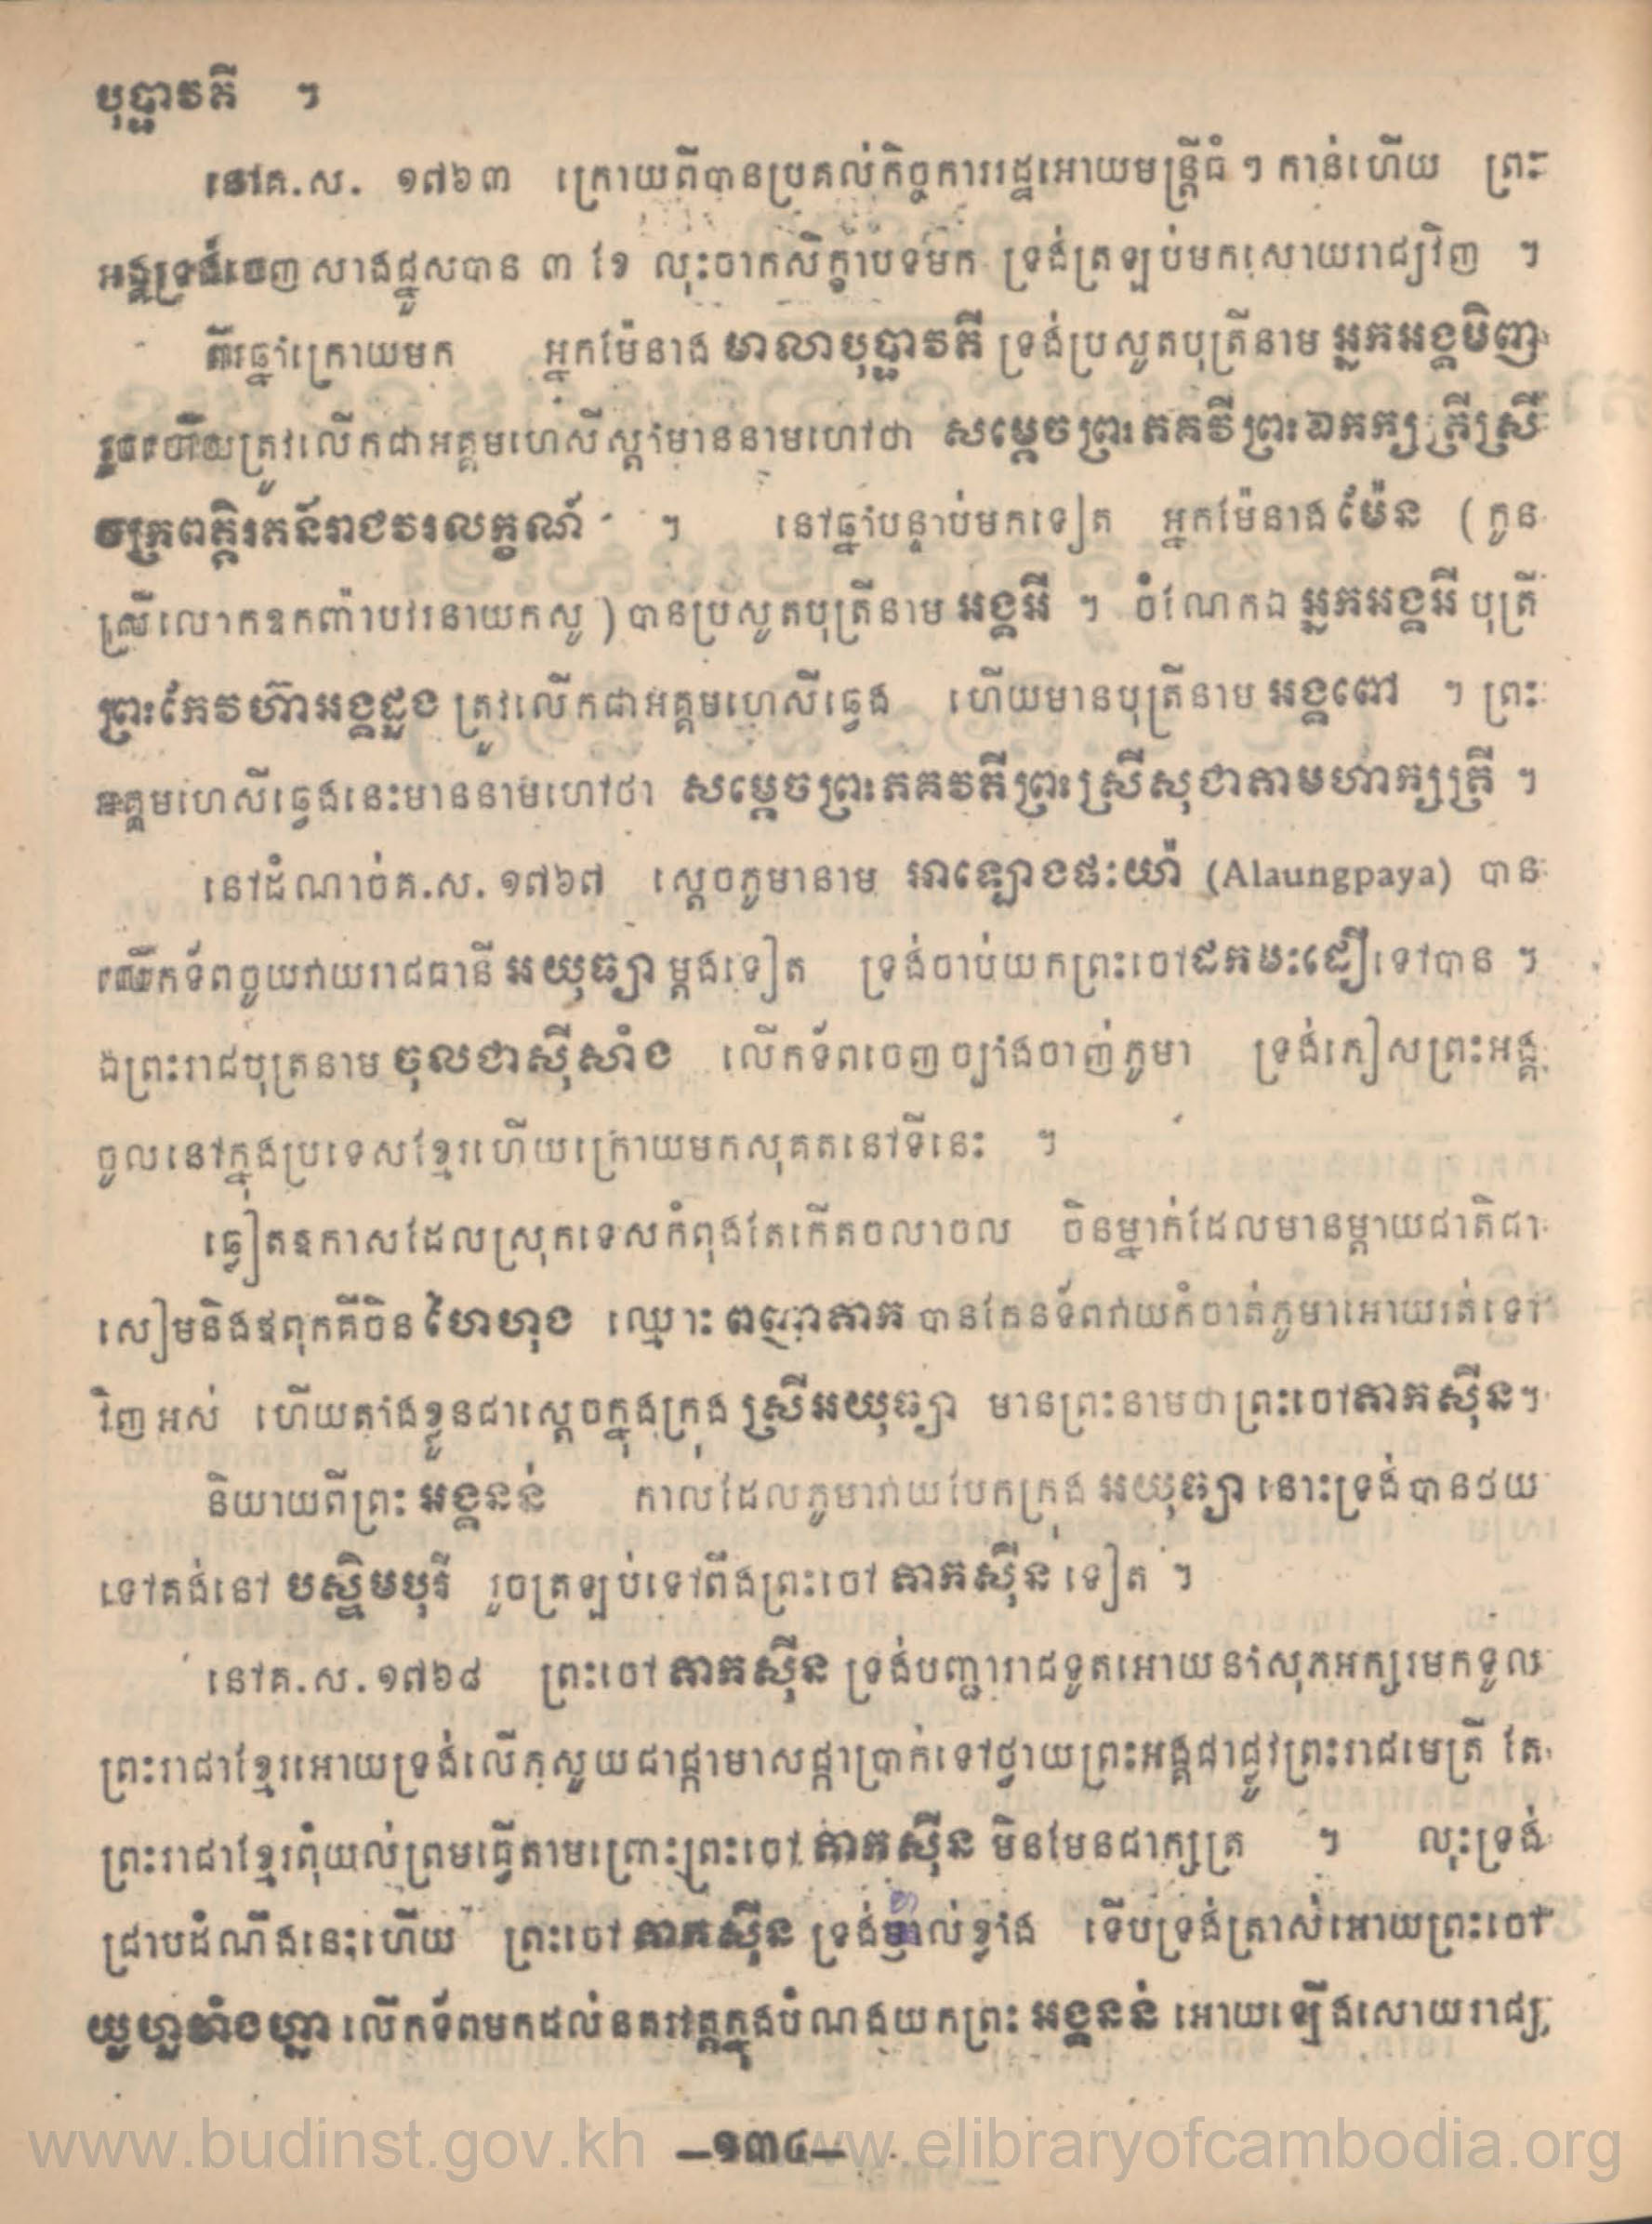 បុប្ផាវតី ។
នៅគ.ស. ១៧៦៣ ក្រោយពីបានប្រគល់កិច្ចការរដ្ឋអោយមន្ត្រីធំៗកាន់ហើយ ព្រះ
អង្គទ្រង់ចេញសាងផ្នួសបាន ៣ ខែ លុះចាកសិក្ខាបទមក ទ្រង់ត្រឡប់មកសោយរាជ្យវិញ ។
ពីរឆ្នាំក្រោយមក អ្នកម៉ែនាង មាលាបុប្ផាវតី ទ្រង់ប្រសូតបុត្រីនាម អ្នកអង្គមិញ
រួចហើយត្រូវលើកជាអគ្គមហេសីស្តាំមាននាមហៅថា សម្តេចព្រះភគវីព្រះឯកក្សត្រីស្រី
ចក្រពត្តិរតន៍រាជវរលក្ខណ៍ ។ នៅឆ្នាំបន្ទាប់មកទៀត អ្នកម៉ែនាង ម៉ែន (កូន
ស្រីលោកឧកញ៉ាបវរនាយកសូ) បានប្រសូតបុត្រីនាម អង្គអី ។ ចំណែកឯ អ្នកអង្គអី បុត្រី
ព្រះកែវហ៊ាអង្គដួង ត្រូវលើកជាអគ្គមហេសីឆ្វេង ហើយមានបុត្រីនាម អង្គពៅ ។ ព្រះ
អគ្គមហេសីឆ្វេងនេះមាននាមហៅថា សម្តេចព្រះភគវតីព្រះស្រីសុជាតាមហាក្សត្រី ។
នៅដំណាច់គ.ស. ១៧៦៧ ស្តេចភូមានាម អាឡោងផះយ៉ា (Alaungpaya) បាន
លើកទ័ពចូយវាយរាជធានី អយុធ្យា ម្តងទៀត ទ្រង់ចាប់យកព្រះចៅដកមះដឿទៅបាន ។
ឯព្រះរាជបុត្រនាម ចុលជាស៊ីសាំង លើកទ័ពចេញច្បាំងចាញ់ភូមា ទ្រង់ភៀសព្រះអង្គ
ចូលនៅក្នុងប្រទេសខ្មែរហើយក្រោយមកសុគតនៅទីនេះ ។
ឆ្លៀតឧកាសដែលស្រុកទេសកំពុងតែកើតចលាចល ចិនម្នាក់ដែលមានម្តាយជាតិជា
សៀមនិងឪពុកគឺចិន ហៃហុង ឈ្មោះ ពញាតាក បានកែនទ័ពវាយកំចាត់ភូមាអោយរត់ទៅ
វិញអស់ ហើយតាំងខ្លួនជាស្តេចក្នុងក្រុង ស្រីអយុធ្យា មានព្រះនាមថាព្រះចៅតាកស៊ីន។
និយាយពីព្រះ អង្គនន់ កាលដែលភូមាវាយបែកក្រុង អយុធ្យា នោះទ្រង់បានថយ
ទៅគង់នៅ បស្ចិមបុរី រួចត្រឡប់ទៅពឹងព្រះចៅ តាកស៊ីន ទៀត ។
នៅគ.ស. ១៧៦៨ ព្រះចៅ តាកស៊ីន ទ្រង់បញ្ជារាជទូតអោយនាំសុភអក្សរមកទូល
ព្រះរាជាខ្មែរអោយទ្រង់លើកសួយជាផ្កាមាសផ្កាប្រាក់ទៅថ្វាយព្រះអង្គជាផ្លូវព្រះរាជមេត្រី តែ
ព្រះរាជាខ្មែរពុំយល់ព្រមធ្វើតាមព្រោះព្រះចៅ តាកស៊ីន មិនមែនជាក្សត្រ ។ លុះទ្រង់
ជ្រាបដំណឹងនេះហើយ ព្រះចៅ តាកស៊ីន ទ្រង់ខ្ញាល់ខ្លាំង ទើបទ្រង់ត្រាស់អោយព្រះចៅ
លើកទ័ពមកដល់នគរវត្តក្នុងបំណងយកព្រះ អង្គនន់ អោយឡើងសោយរាជ្យ
—១៣៤—
www.budinst.gov.kh www.elibraryofcambodia.org